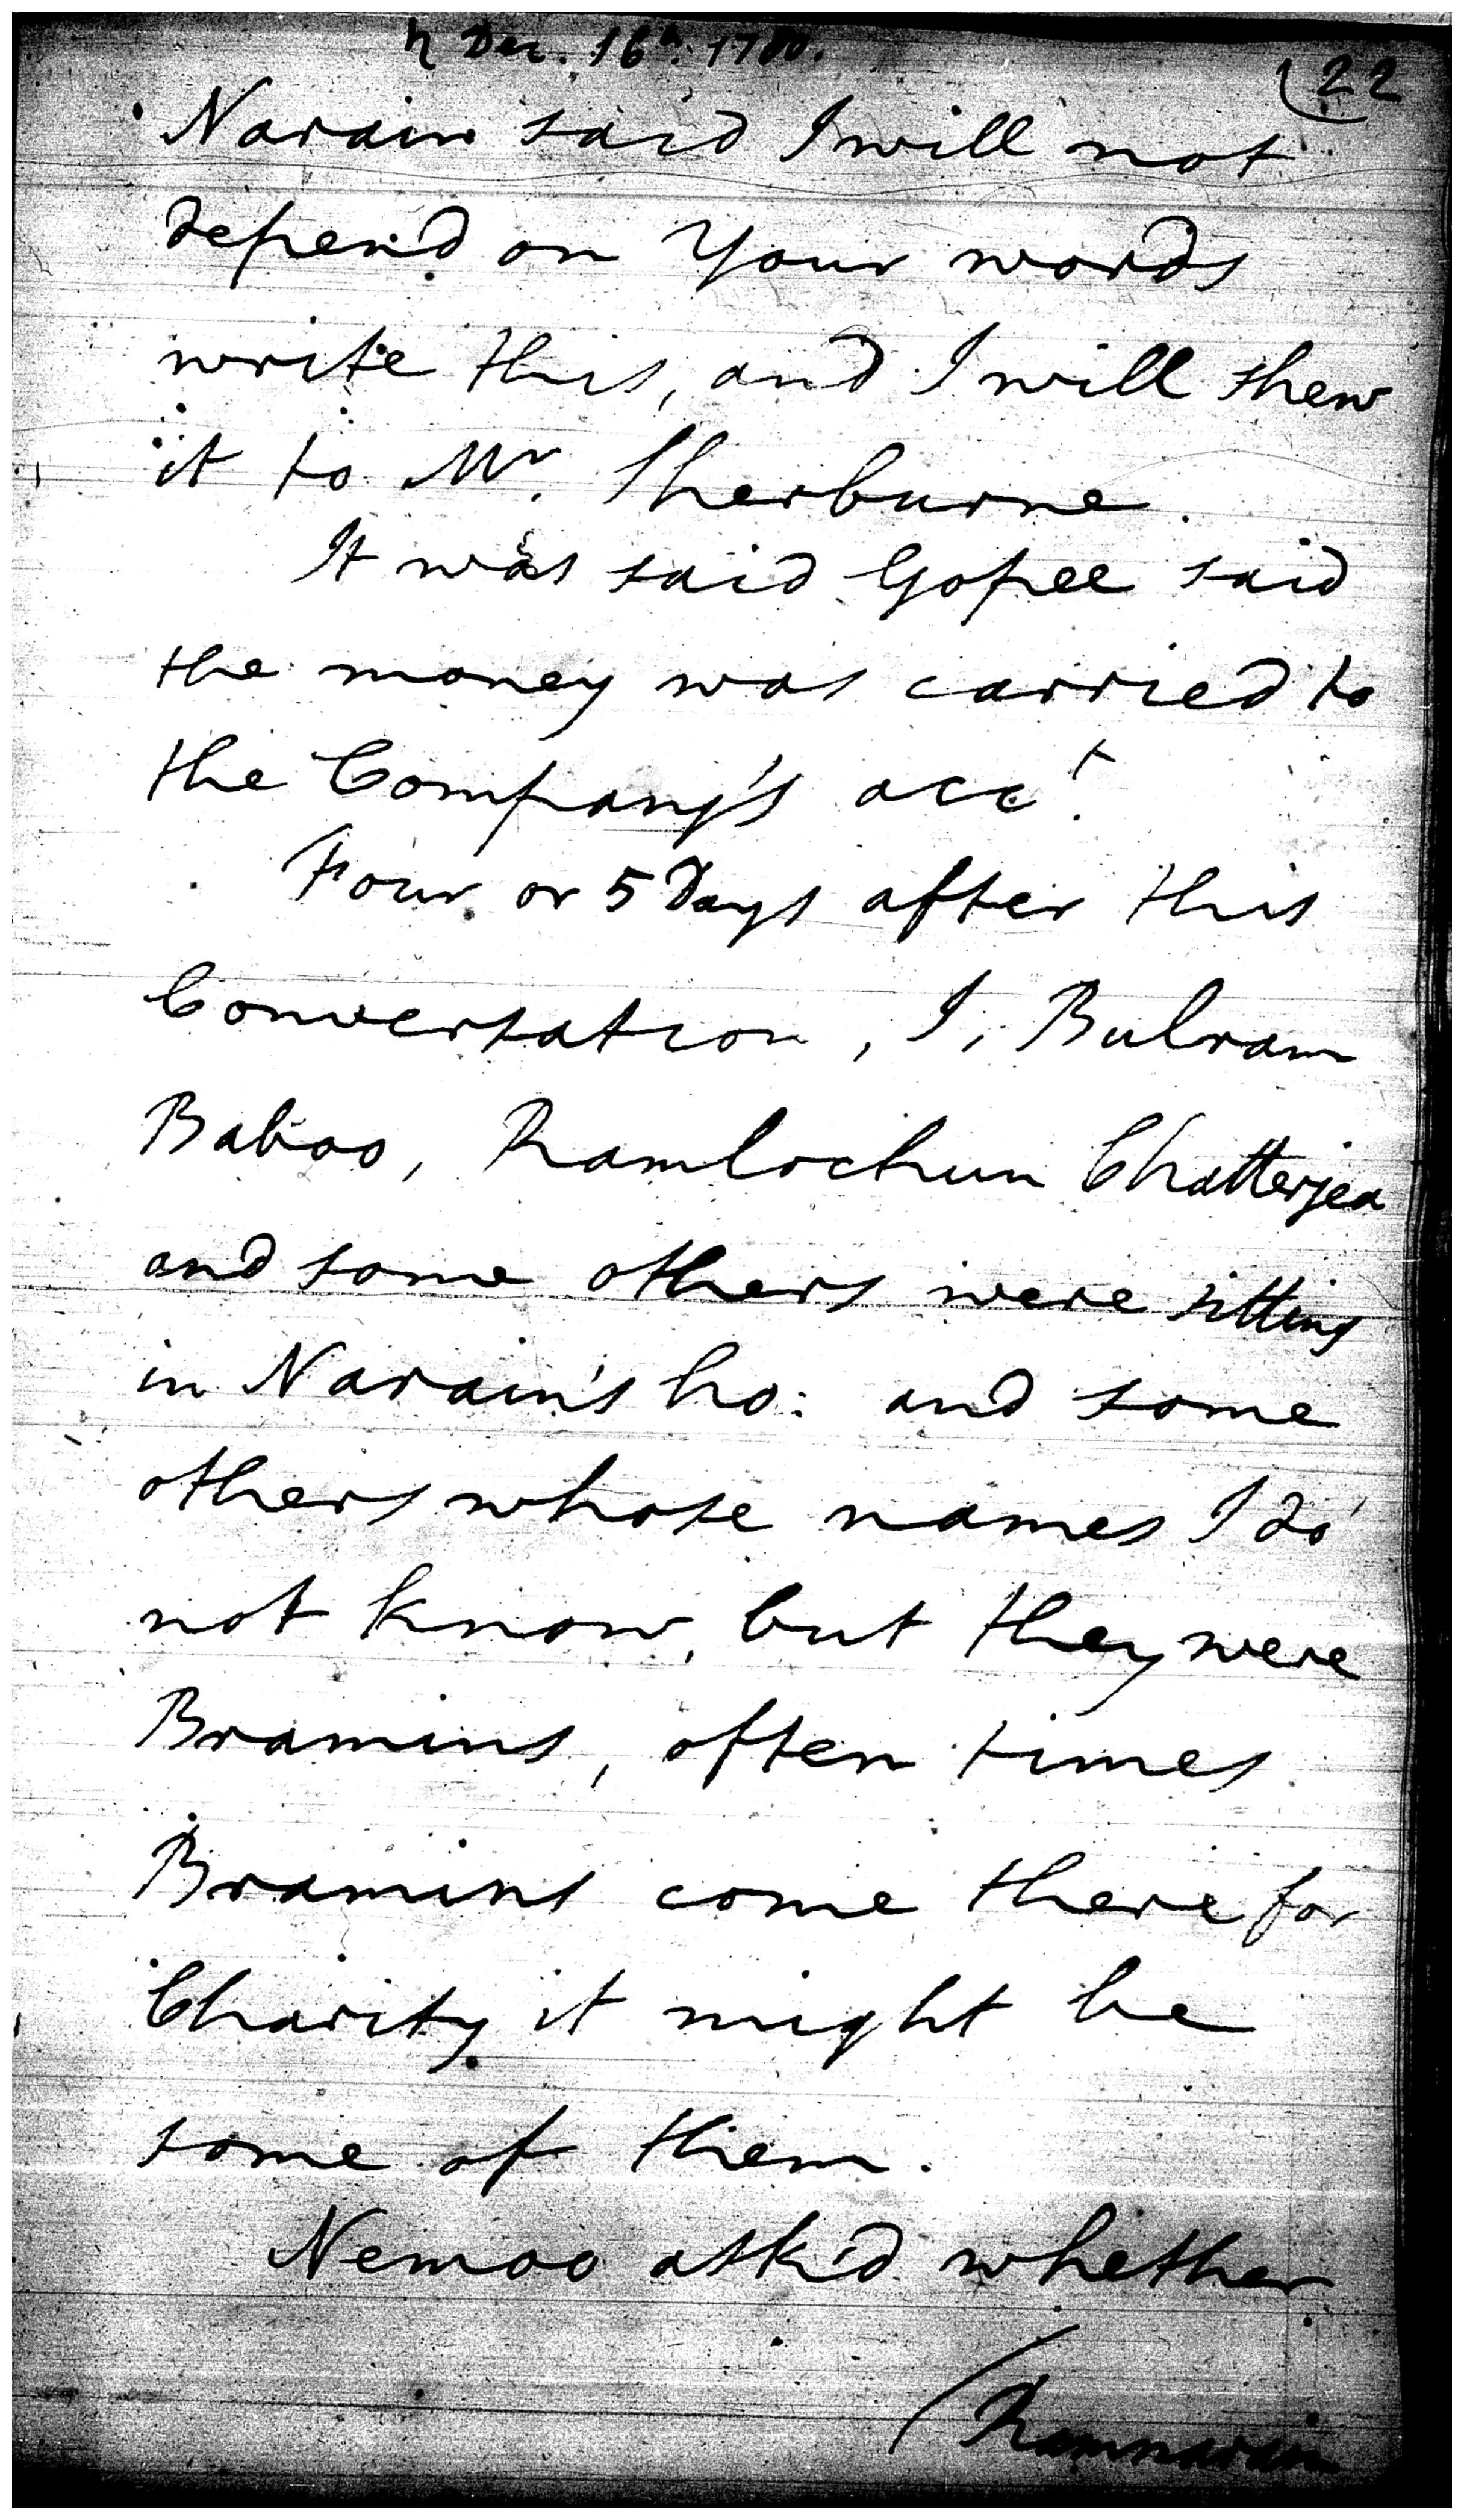 ♄ Dec. 16th. 1780.
22
Narain said I will not
depend on Your words
write this, and I will shew
it to Mr. Sherburne.
It was said Gopee said
the money was carried to
the Company's acct.
Four or 5 Days after this
Conversation, I, Bulram
Baboo, Ramlochun Chatterjea
and some others were sitting
in Narain's ho: and some
others whose names I do
not know, but they were
Bramins, often times
Bramins come there for
Charity it might be
some of them.
Nemoo ask'd whether
Ramnarain